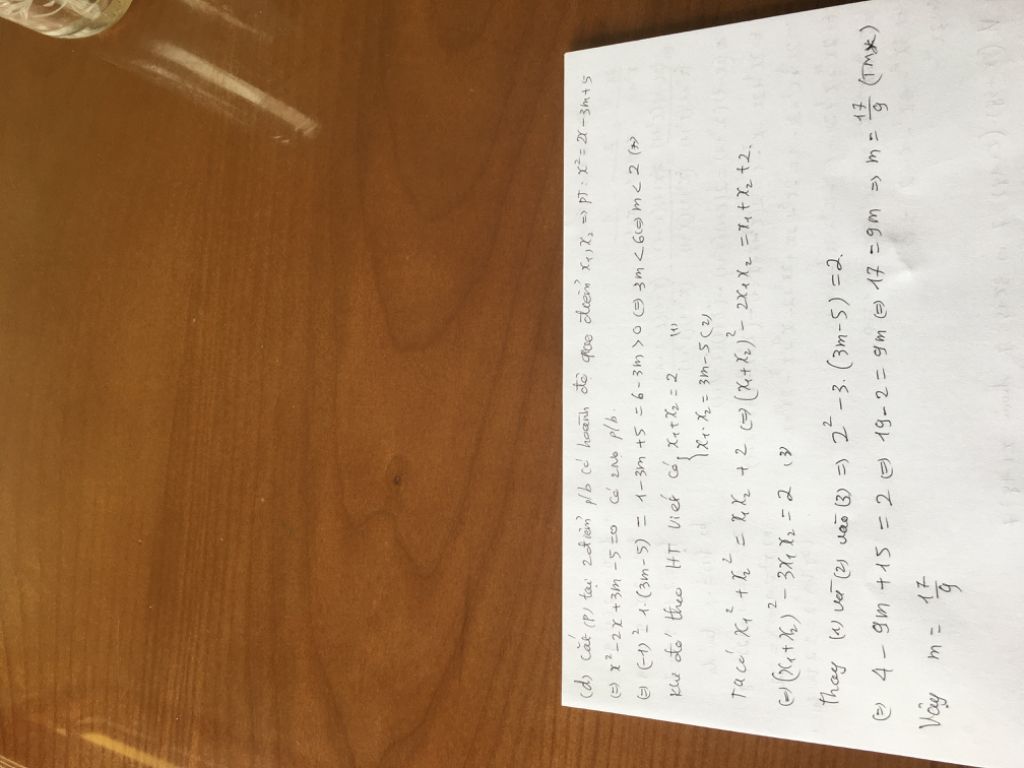 (d) cắt (P) tại 2 điểm p/b có hoành độ giao điểm x₁, x₂ => PT: x² = 2x - 3m + 5
(=) x² - 2x + 3m - 5 = 0 có 2No p/b.
(=) (-1)² - 1.(3m - 5) = 1 - 3m + 5 = 6 - 3m > 0 (=) 3m < 6 (=) m < 2 (*)
khi đó theo HT Viét có { x₁ + x₂ = 2 (1)
x₁. x₂ = 3m - 5 (2)
Ta có x₁² + x₂² = x₁x₂ + 2 (=) (x₁ + x₂)² - 2x₁x₂ = x₁ + x₂ + 2.
(=) (x₁ + x₂)² - 3x₁x₂ = 2 (3)
thay (1) và (2) vào (3) => 2² - 3.(3m - 5) = 2
(=) 4 - 9m + 15 = 2 (=) 19 - 2 = 9m (=) 17 = 9m => m = 17/9 (TM*)
Vậy m = 17/9